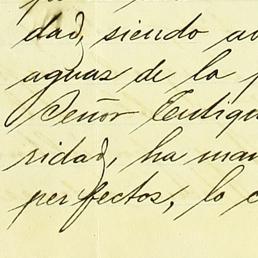 dad, siendo
aguas de la
Señor
sidad, ha
perfectos, lo